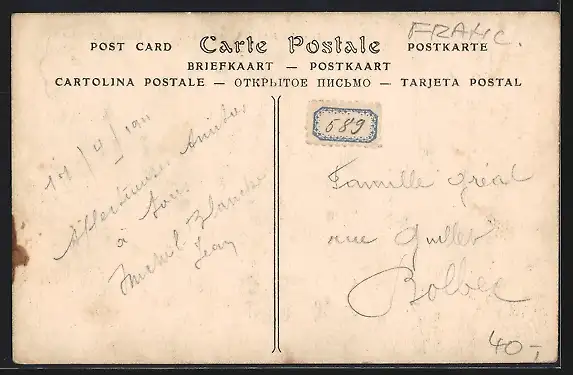 FRANC.
POST CARD Carte Postale POSTKARTE
BRIEFKAART — POSTKAART
CARTOLINA POSTALE — ОТКРЫТОЕ ПИСЬМО — TARJETA POSTAL
589
Affectueuses Amitiés
à tous
Blanche
Jean
Famille Gréal
rue Guillet
Bolbec
40-,